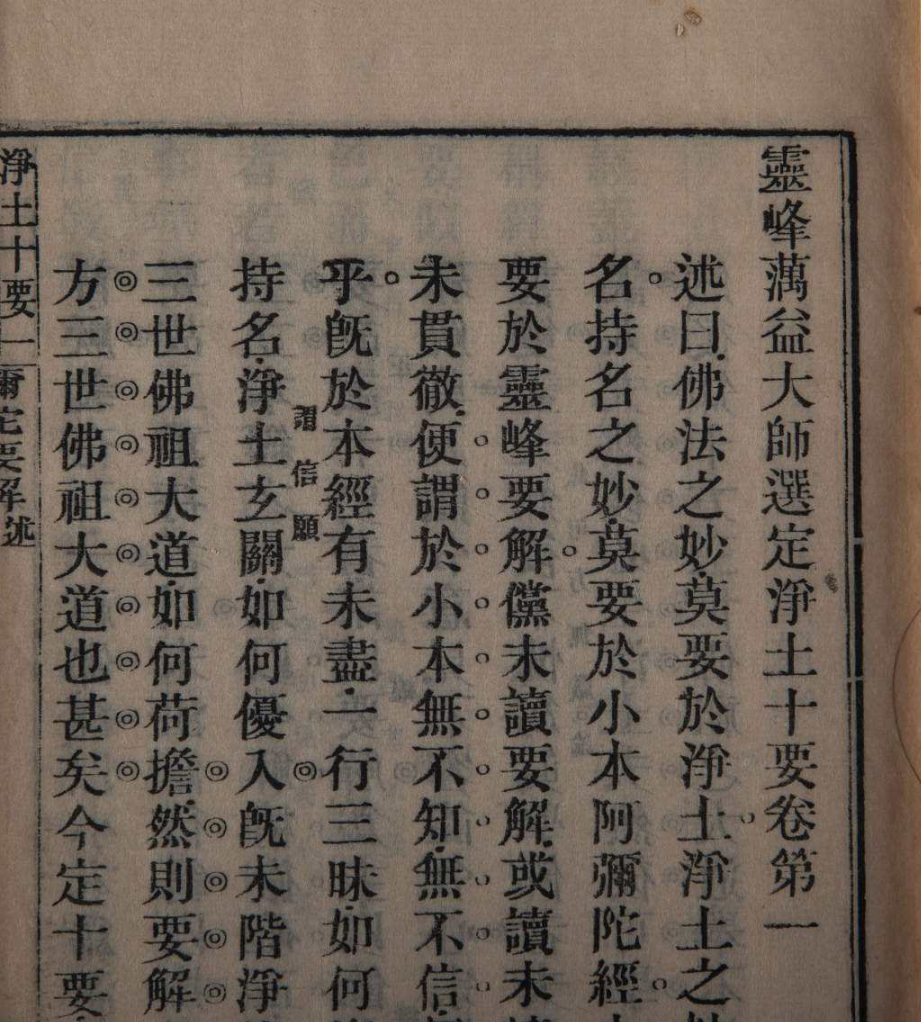 靈峰蕅益大師選定淨土十要卷第一
述曰佛法之妙莫要於淨土淨土之妙
名持名之妙莫要於小本阿彌陀經
要於靈峰要解儻未讀要解或讀未
未貫徹便謂於小本無不知無不信
乎旣於本經有未盡一行三昧如何
謂信願
持名淨土玄關如何優入旣未階淨
三世佛祖大道如何荷擔然則要解
方三世佛祖大道也甚矣今定十要
淨土十要一 彌陀要解述